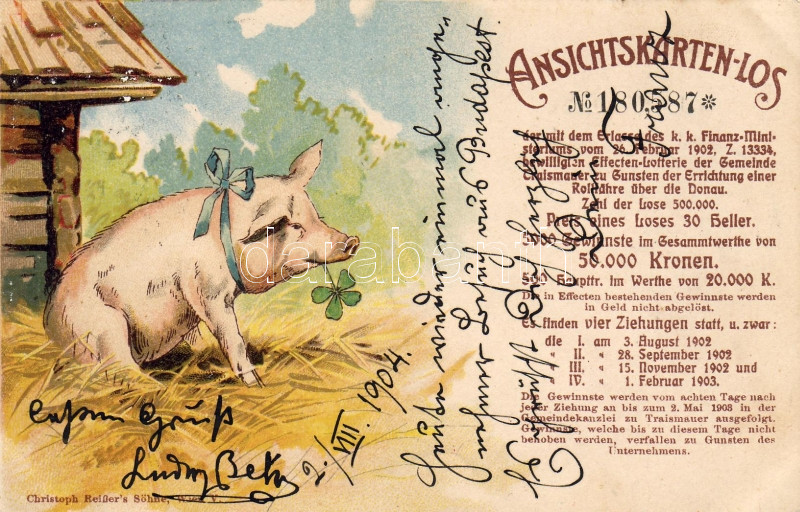 ANSICHTSKARTEN-LOS
№ 180587*
der mit dem Erlasse des k. k. Finanz-Mini-
steriums vom 26. Februar 1902, Z. 13334,
bewilligten Effecten-Lotterie der Gemeinde
Traismauer zu Gunsten der Errichtung einer
Rollfähre über die Donau.
Zahl der Lose 500.000.
Preis eines Loses 30 Heller.
5000 Gewinnste im Gesammtwerthe von
50.000 Kronen.
Haupttr. im Werthe von 20.000 K.
Die in Effecten bestehenden Gewinnste werden
in Geld nicht abgelöst.
Es finden vier Ziehungen statt, u. zwar:
die I. am 3. August 1902
„ II. „ 28. September 1902
„ III. „ 15. November 1902 und
„ IV. „ 1. Februar 1903.
Die Gewinnste werden vom achten Tage nach
jeder Ziehung an bis zum 2. Mai 1903 in der
Gemeindekanzlei zu Traismauer ausgefolgt.
Gewinnste, welche bis zu diesem Tage nicht
behoben werden, verfallen zu Gunsten des
Unternehmens.
Heute wieder einmal ange-
nehmer Besuch aus Budapest.
Es grüßt Dich herzlich
Dein
2./VIII. 1904.
Gruß
Ludwig
Christoph Reißer's Söhne, Wien V.
darabanth